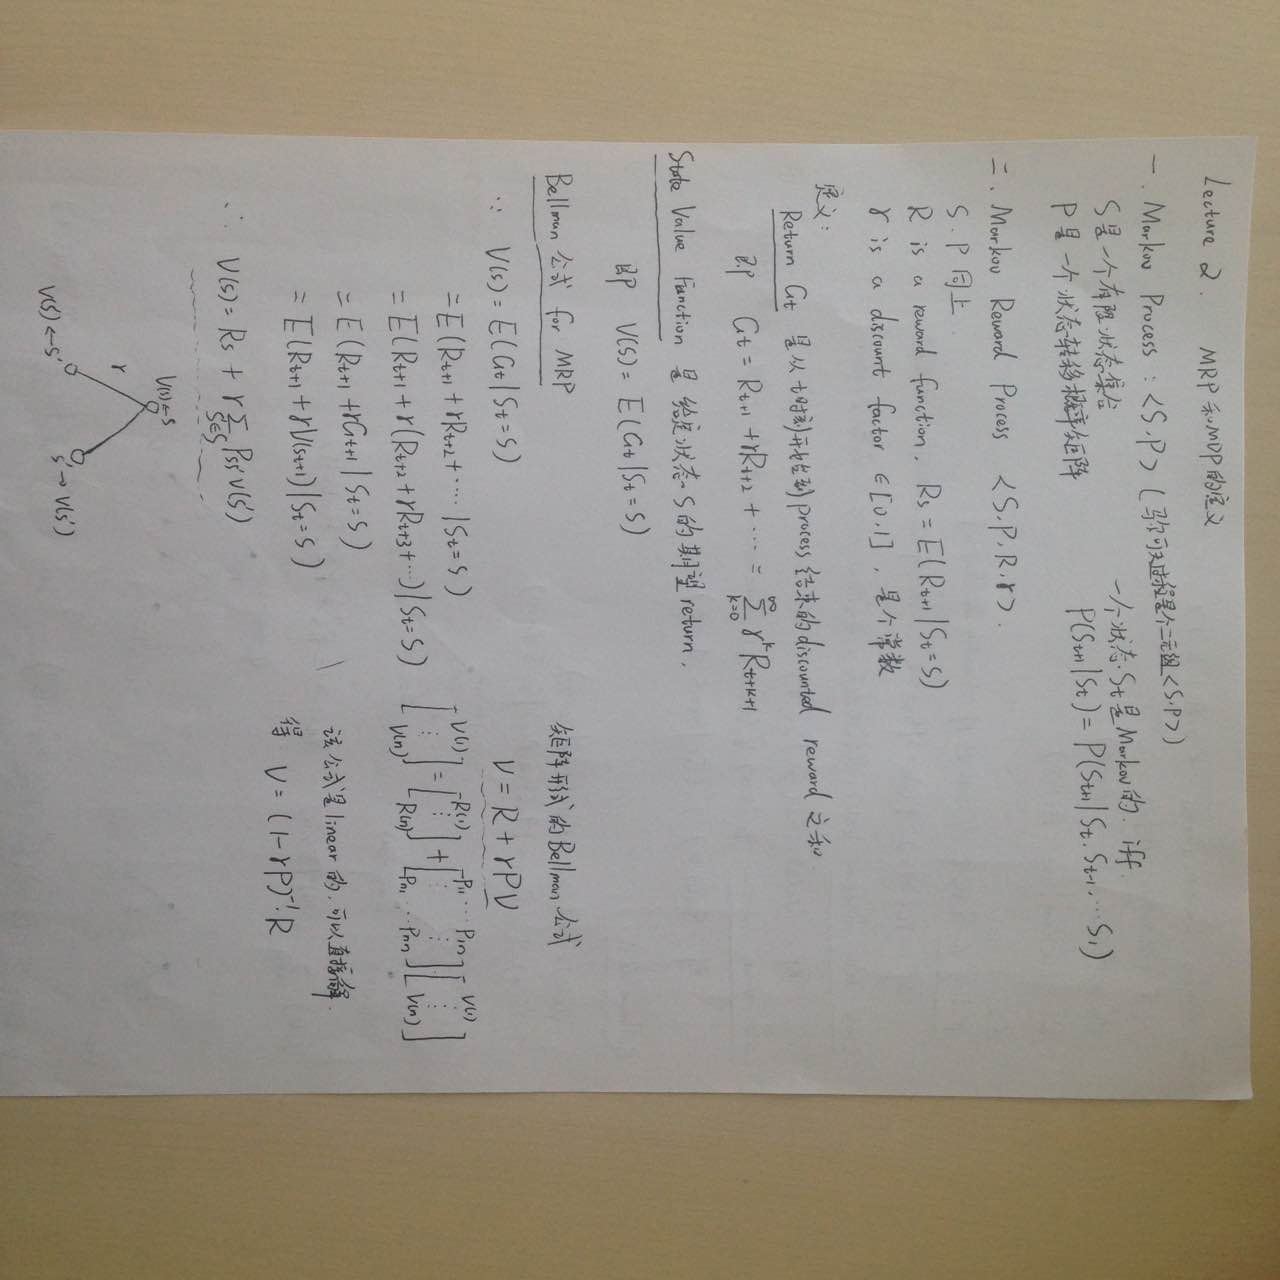 Lecture 2. MRP和MDP的定义
一. Markov Process : <S.P> (马尔可夫过程是个二元组<S.P>)
S是一个有限状态集合
P是一个状态转移概率矩阵
一个状态St是Markov的. iff.
P(St+1|St) = P(St+1|St. St-1. ⋯S1)
二. Markov Reward Process <S.P.R.γ>.
S.P同上.
R is a reward function. Rs = E(Rt+1|St=s)
γ is a discount factor ∈[0,1]. 是个常数
定义:
Return Gt 是从t时刻开始到process结束的discounted reward之和
即 Gt = Rt+1 + γRt+2 + ⋯ = ∑k=0∞ γ^k Rt+k+1
State Value Function 是给定状态S的期望return.
即 V(s) = E(Gt|St=s)
Bellman 公式 for MRP
∵ V(s) = E(Gt|St=s)
= E(Rt+1 + γRt+2 + ⋯ |St=s)
= E(Rt+1 + γ(Rt+2 + γRt+3 + ⋯)|St=s)
= E(Rt+1 + γGt+1|St=s)
= E(Rt+1 + γV(st+1)|St=s)
∴ V(s) = Rs + γ∑s'∈S Pss' V(s')
V(s)←s
γ
V(s')←s' s'→V(s')
矩阵形式的Bellman公式
V = R + γPV
[V(1) ⋮ V(n)] = [R(1) ⋮ R(n)] + [P11 ⋯ P1n ⋮ ⋮ Pn1 ⋯ Pnn][V(1) ⋮ V(n)]
该公式是linear的. 可以直接解.
得 V = (1-γP)^-1·R